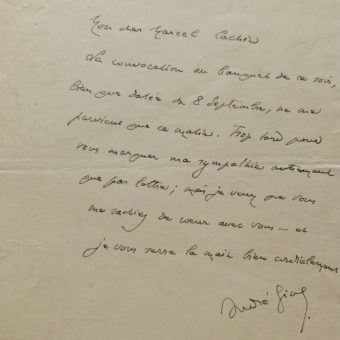 Mon cher Marcel Cachin
La convocation au banquet de ce soir,
bien que datée du 8 Septembre, ne me
parvient que ce matin. Trop tard pour
vous marquer ma sympathie autrement
que par lettre ; mais je veux que vous
me sachiez de cœur avec vous – et
je vous serre la main bien cordialement
André Gide